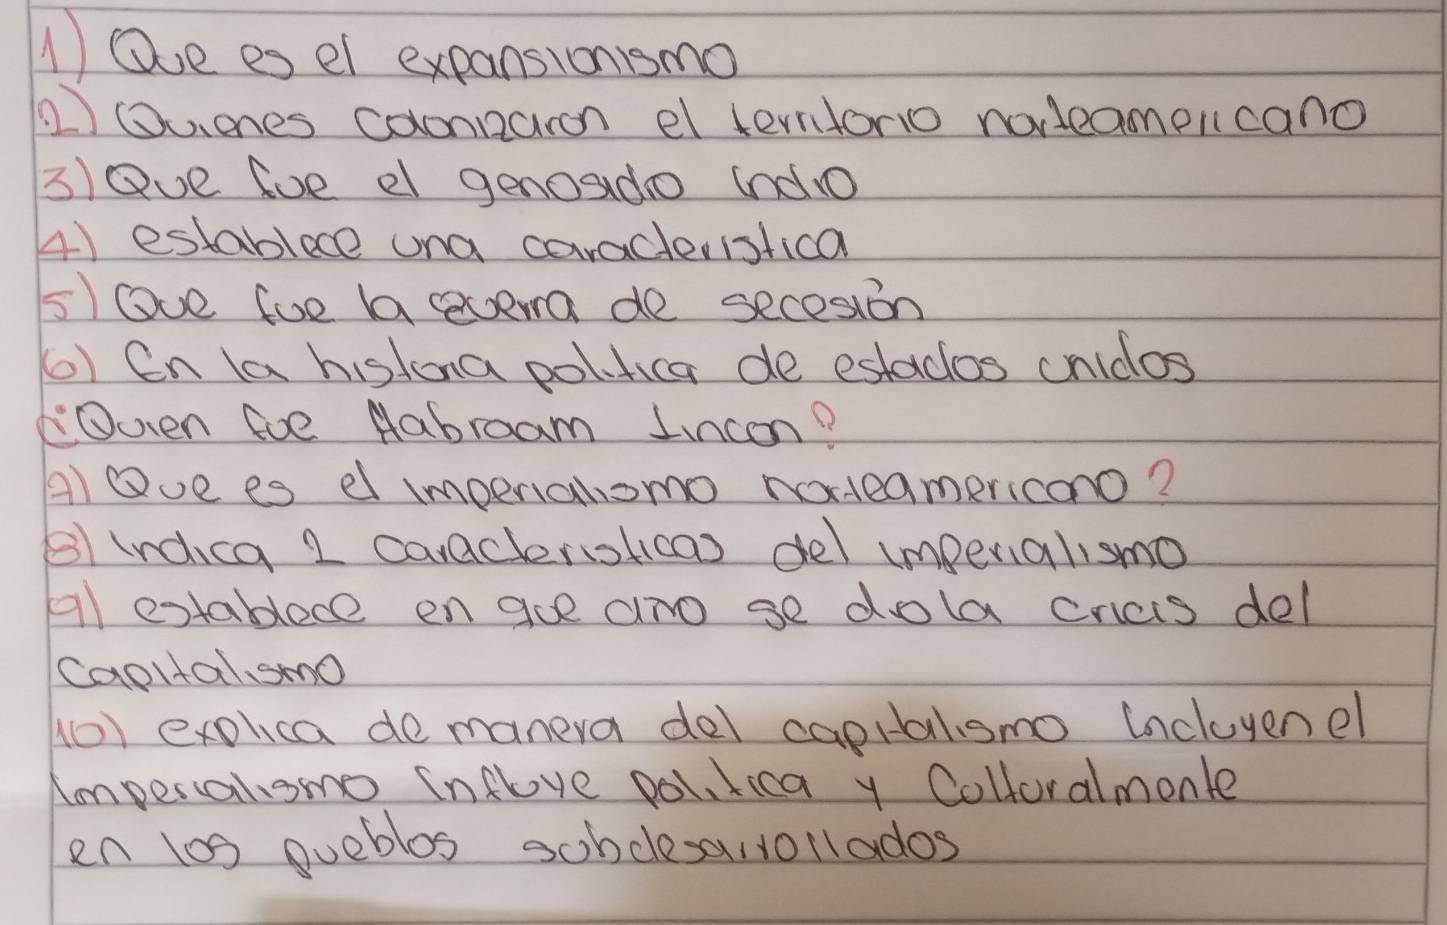 1) Que es el expansionismo
2) Quienes colonizaron el territorio norteamericano
3) Que fue el genosidio indio
4) establece una caracteristica
5) Que fue la guerra de secesión
6) En la historia politica de estados unidos
¿Quien fue Habraam Lincon?
7) Que es el imperialismo norteamericano?
8) indica 2 caracteristicas del imperialismo
9) establece en que año se dio la cricis del
capitalismo
10) explica de manera del capitalismo incluyen el
imperialismo influye politica y Culturalmente
en los pueblos subdesarrollados